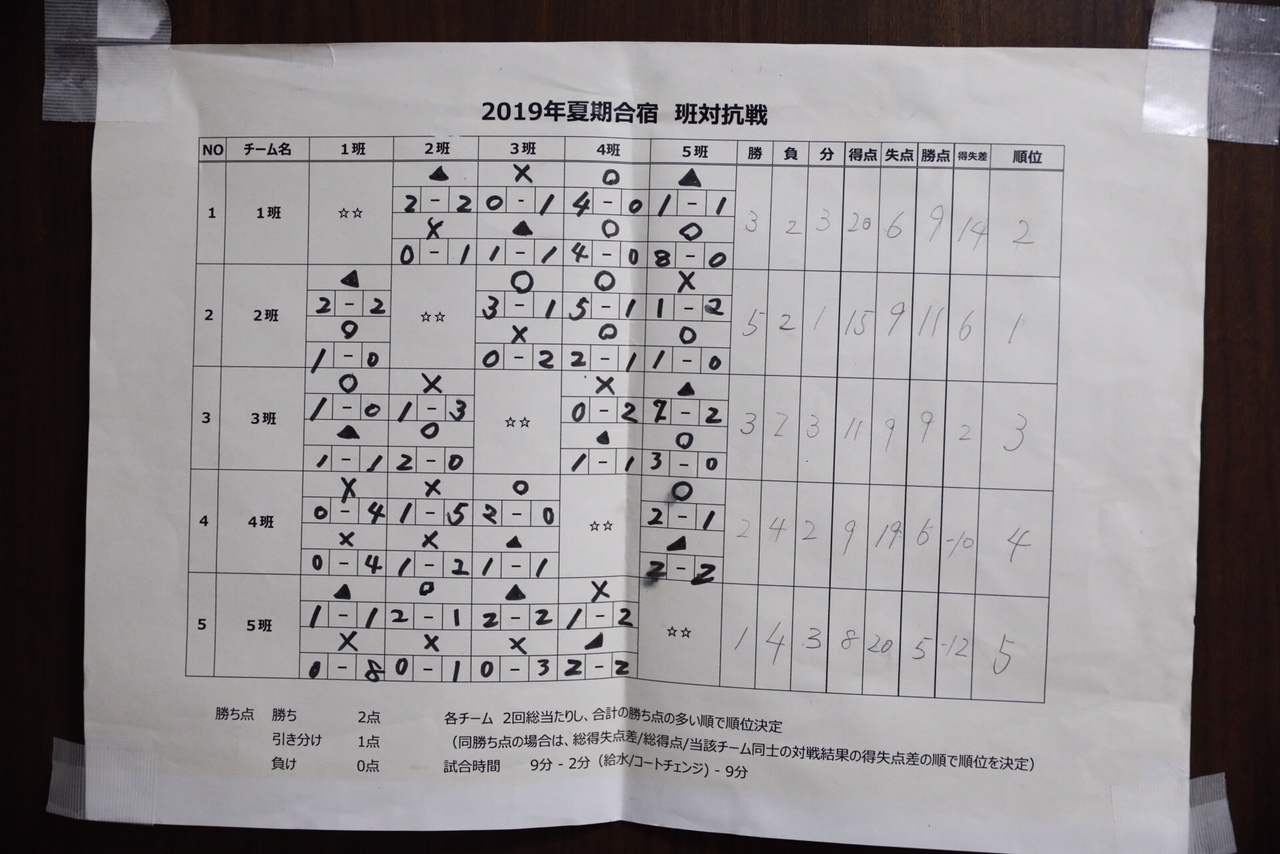 2019年夏期合宿 班対抗戦
NO チーム名 1班 2班 3班 4班 5班 勝 負 分 得点 失点 勝点 得失差 順位
▲ × ○ ▲
2 - 2 0 - 1 4 - 0 1 - 1
1 1班 ☆☆ 3 2 3 20 6 9 14 2
× ▲ ○ ○
0 - 1 1 - 1 4 - 0 8 - 0
▲ ○ ○ ×
2 - 2 3 - 1 5 - 1 1 - 2
2 2班 ☆☆ 5 2 1 15 9 11 6 1
○ × ○ ○
1 - 0 0 - 2 2 - 1 1 - 0
○ × × ▲
1 - 0 1 - 3 0 - 2 2 - 2
3 3班 ☆☆ 3 2 3 11 9 9 2 3
▲ ○ ▲ ○
1 - 1 2 - 0 1 - 1 3 - 0
× × ○ ○
0 - 4 1 - 5 2 - 0 2 - 1
4 4班 ☆☆ 2 4 2 9 19 6 -10 4
× × ▲ ▲
0 - 4 1 - 2 1 - 1 2 - 2
▲ ○ ▲ ×
1 - 1 2 - 1 2 - 2 1 - 2
5 5班 ☆☆ 1 4 3 8 20 5 -12 5
× × × ▲
0 - 8 0 - 1 0 - 3 2 - 2
勝ち点 勝ち 2点 各チーム 2回総当たりし、合計の勝ち点の多い順で順位決定
引き分け 1点 （同勝ち点の場合は、総得失点差/総得点/当該チーム同士の対戦結果の得失点差の順で順位を決定）
負け 0点 試合時間 9分 - 2分（給水/コートチェンジ）- 9分